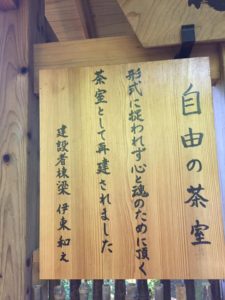 自由の茶室
形式に捉われず心と魂のために頂く
茶室として再建されました
建設者棟梁 伊東和之